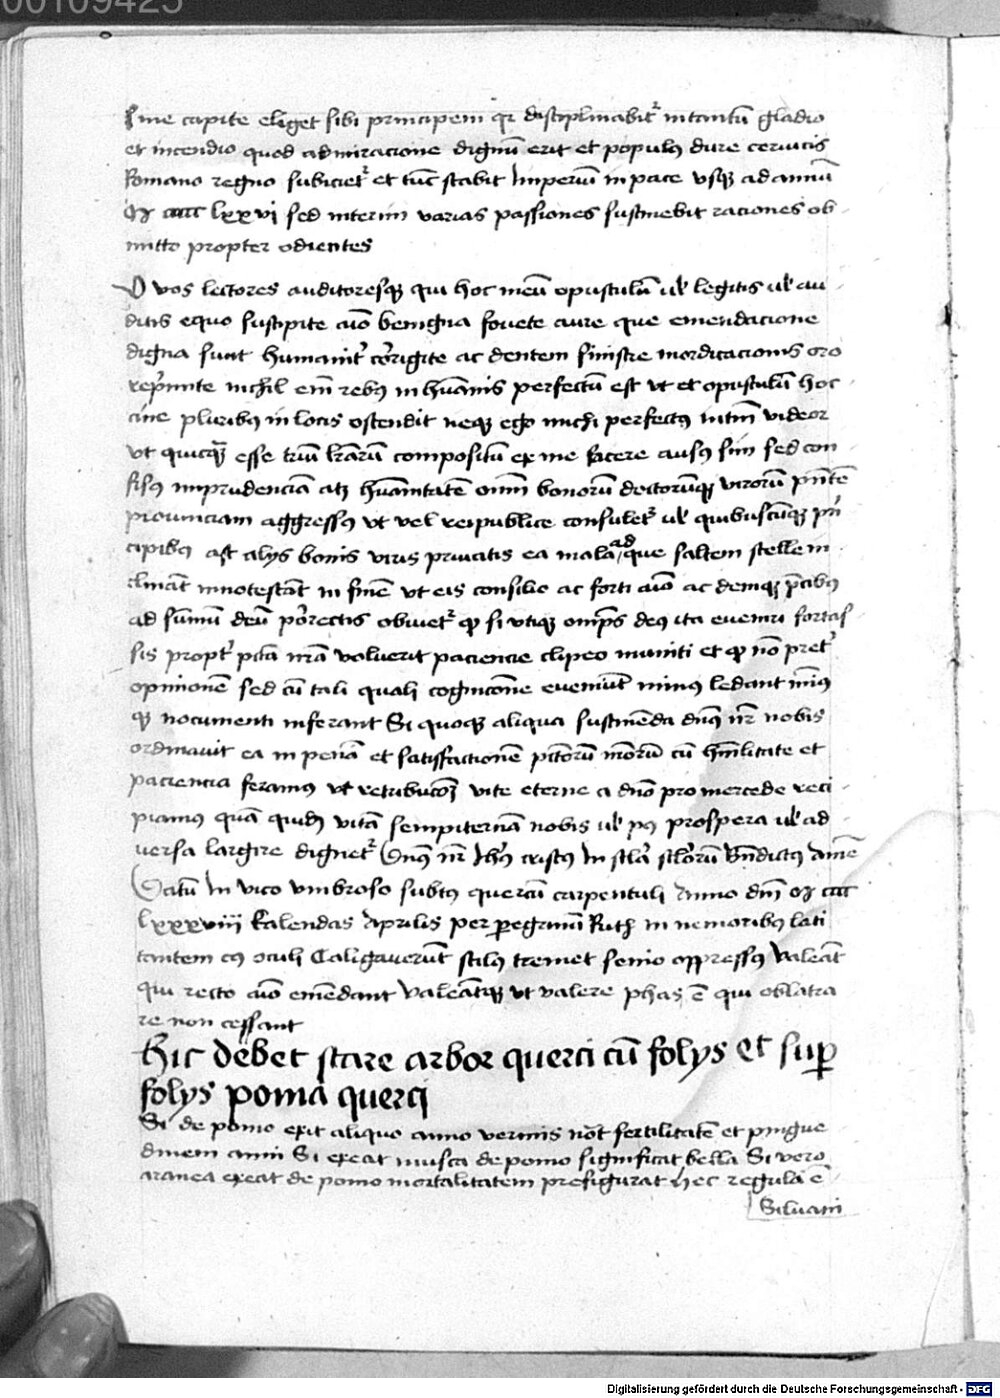 00109425
sine capite eliget sibi principem qͥ disciplinabitr intantū gladio
et incendio quod admiracione dignū erit et populus dure ceruicis
Romano regno subicietr et tūc stabit Imperiū in pace vsqȝ ad annū
lxxvi sed interim varias passiones sustinebit raciones ob
mitto propter odientes
O vos lectores auditoresqȝ qui hoc meū opusculū ul legitis ul au
ditis equo suscipite aīo benigna fouete aure que emendacione
digna sunt humanitr corrigite ac dentem sinistre mordicacionis oro
repīmite nichil em̄ rebus in hūanis perfectū est vt et opusculū hoc
pluribus in locis ostendit neqȝ ego michi perfectus videor
vt quicqȝ esse composítū ex me facere ausus sim sed con
fisus imprudenciā atqȝ hūanitatē om̄ bonorū doctorūqȝ virorū pn̄te
prouinciam aggressus vt vel reipublice consuletr ul quibuscūqȝ pn̄
cipibus ast alys bonis viris priuatis ea mala ad que saltem stelle in
clināt innotescāt in finē vt eis consilio ac forti aīo ac deniqȝ p̄cibus
ad sūmū deū porrectis obuietr qȝ si vtiqȝ omps deus ita euenire fortas
sis proptr pctā nrā voluerit paciencie clipeo muniti et qȝ nō pretr
opinionē sed cū tali quali cognicōne eueniūt minus ledant
qȝ nocumenti inferant Si quoqȝ aliqua sustinenda dn̄s nr̄ nobis
ordinauit ea in penā et satisfactionē pctorū nrorū cū hūilitate et
paciencia feramus vt retribucōȝ vite eterne a dn̄o pro mercede reci
piamus quā quidȝ vitā sempiternā nobis ul pus prospera ul ad
uersa largire dignetr Dn̄s nr̄ Ihs̄ cristus In scl̄a scl̄orū Bn̄dictus Amē
Datū In vico vmbroso subtus quercū carpentuli Anno dn̄i
lxxxviii kalendas Aprilis per peregrinū Ruth in nemoribus lati
tantem cus oculi Caligauerūt stilus tremet senio oppressus Valeāt
qui recto aīo emēdant Valeātqȝ vt valere phas ē qui oblatra
re non cessant
Hic debet stare arbor querci cū folys et sup
folys poma querci
Si de pomo exit aliquo anno vermis not fertilitatē et pingue
dinem anni Si exeat musca de pomo significat bella Si vero
aranea exeat de pomo mortalitatem prefigurat hec regula ē
Siluani
Digitalisierung gefördert durch die Deutsche Forschungsgemeinschaft - DFG